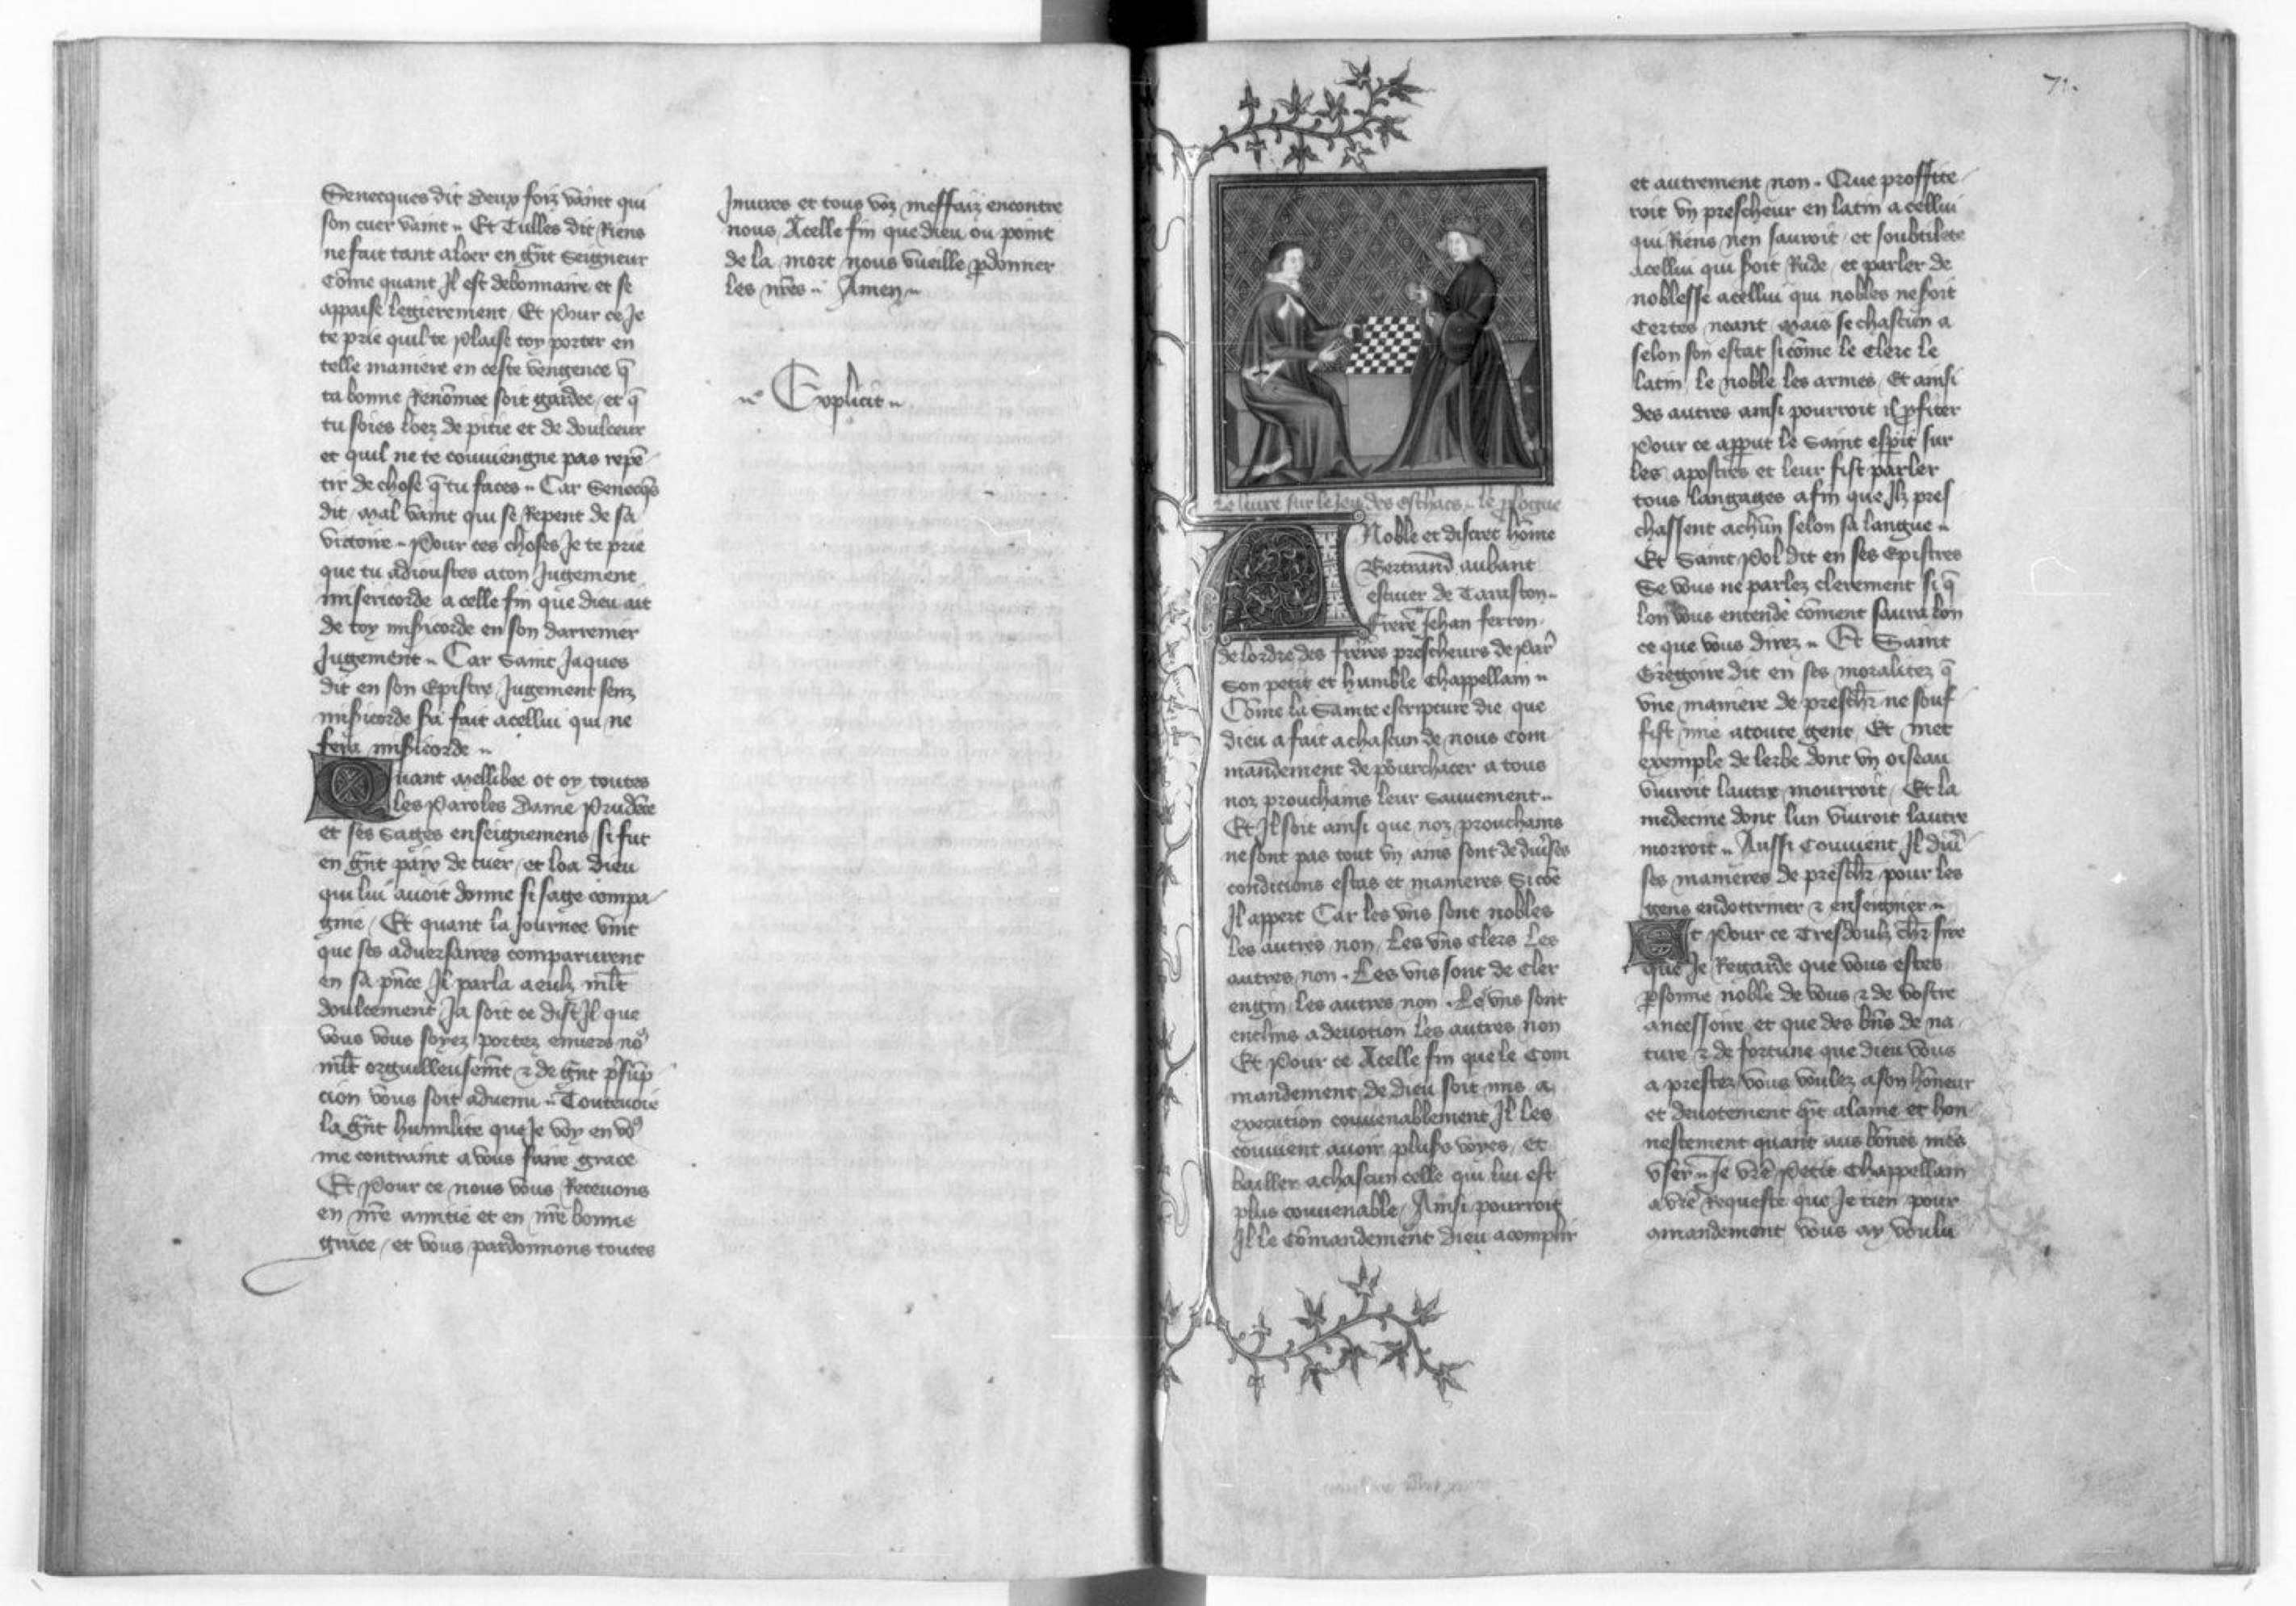 Senecques dit deux foiz vaint qui
son cuer vaint Et Tulles dit Riens
ne fait tant aloer en grãt Seigneur
Cõme quant Il est debonnaire et se
appaise legierement Et Pour ce Je
te prie quil te Plaise toy porter en
telle maniere en ceste vengence q̃
ta bonne Renõmee soit gardee et q̃
tu soies loez de pitie et de doulceur
et quil ne te conuiengne pas repẽ
tir de chose q̃ tu faces Car Senecq̃s
dit Mal vaint qui se Repent de sa
victoire Pour ces choses Je te prie
que tu adioustes aton Jugement
misericorde a celle fin que dieu ait
de toy mis̾icorde en son darrenier
Jugement Car Saint Jaques
dit en son Epistre Jugement senz
mis̾icorde s̾a fait acellui qui ne
fera mis̾icorde
Quant Mellibee ot oy toutes
les Paroles Dame Prudẽce
et ses Sages enseignemens si fut
en grãt paix de cuer et loa Dieu
qui lui auoit donne si sage compa
gnie Et quant la Journee vint
que ses aduersaires comparurent
en sa pñce Il parla a eulz mlt̃
doulcement Ja soit ce dist Il que
vous vous soyez portez enuers noꝰ
mlt̃ orguilleusemt̃ ⁊ de grãt p̃sũp
cion vous soit aduenu Touteuoie
la grãt humilite que Je voy en voꝰ
me contraint a vous faire grace
Et Pour ce nous vous Receuons
en nr̃e amitie et en nr̃e bonne
grace et vous pardonnons toutes
Iniures et tous voz meffaiz encontre
nous Acelle fin que dieu ou point
de la mort nous vueille p̱donner
les nr̃es Amen
Explicit
71.
Le liure sur le Jeu des eschacs le plogue
A Noble et discret hõme
Bertrand aubant
escuier de Tarascon
frere Jehan ferron
de lordre des freres prescheurs de Par̃
Son petit et humble Chappellain
Cõme la Sainte escripture die que
dieu a fait a chascun de nous Com
mandement de pourchacer a tous
noz prouchains leur Sauuement
Et Il soit ainsi que noz prouchains
ne sont pas tout vn ains sont de diu̾ses
condicions estas et manieres Sicõe
Il appert Car les vns sont nobles
les autres non Les vns Clers Les
autres non Les vns sont de cler
engin les autres non Les vns sont
enclins a deuotion les autres non
Et Pour ce Acelle fin que le Com
mandement de dieu soit mis a
execution conuenablement Il les
conuient auoir plus̾s voyes et
bailler achascun celle qui lui est
plus conuenable Ainsi pourroit
Il le Cõmandement Dieu acomplir
et autrement non Que proffite
roit vn prescheur en latin a cellui
qui Riens nen sauroit et soubtilete
acellui qui soit Rude et parler de
noblesse acellui qui nobles ne soit
Certes neant Mais se chascun a
selon son estat si cõme le Clerc le
latin le noble les armes Et ainsi
des autres ainsi pourroit il p̱fiter
Pour ce apput le Saint esp̃it sur
les apostres et leur fist parler
tous langages afin que Ilz pres
chassent achũn selon sa langue
Et Saint Pol dit en ses Epistres
Se vous ne parlez clerement si q̃
lon vous entende cõment saura lon
ce que vous direz Et Saint
Gregoire dit en ses moralitez q̃
vne maniere de preschr̃ ne souf
fist mie atoute gent Et met
exemple de lerbe dont vn oiseau
viuroit lautre mourroit Et la
medecine dont lun viuroit lautre
morroit Aussi Conuient Il diu̾
ses manieres de preschr̃ pour les
gens endoctriner ⁊ enseigner
Et Pour ce Tresdoulz chr̃ sire
que Je Regarde que vous estes
p̱sonne noble de vous ⁊ de vostre
ancessoire et que des bñs de na
ture ⁊ de fortune que dieu vous
a prestez vous voulez a son hõneur
et deuotement qñt alame et hon
nestement quant aus bõnes meͬs
vser Je vr̃e Petit Chappellain
a vr̃e Requeste que Je tien pour
amandement vous ay voulu